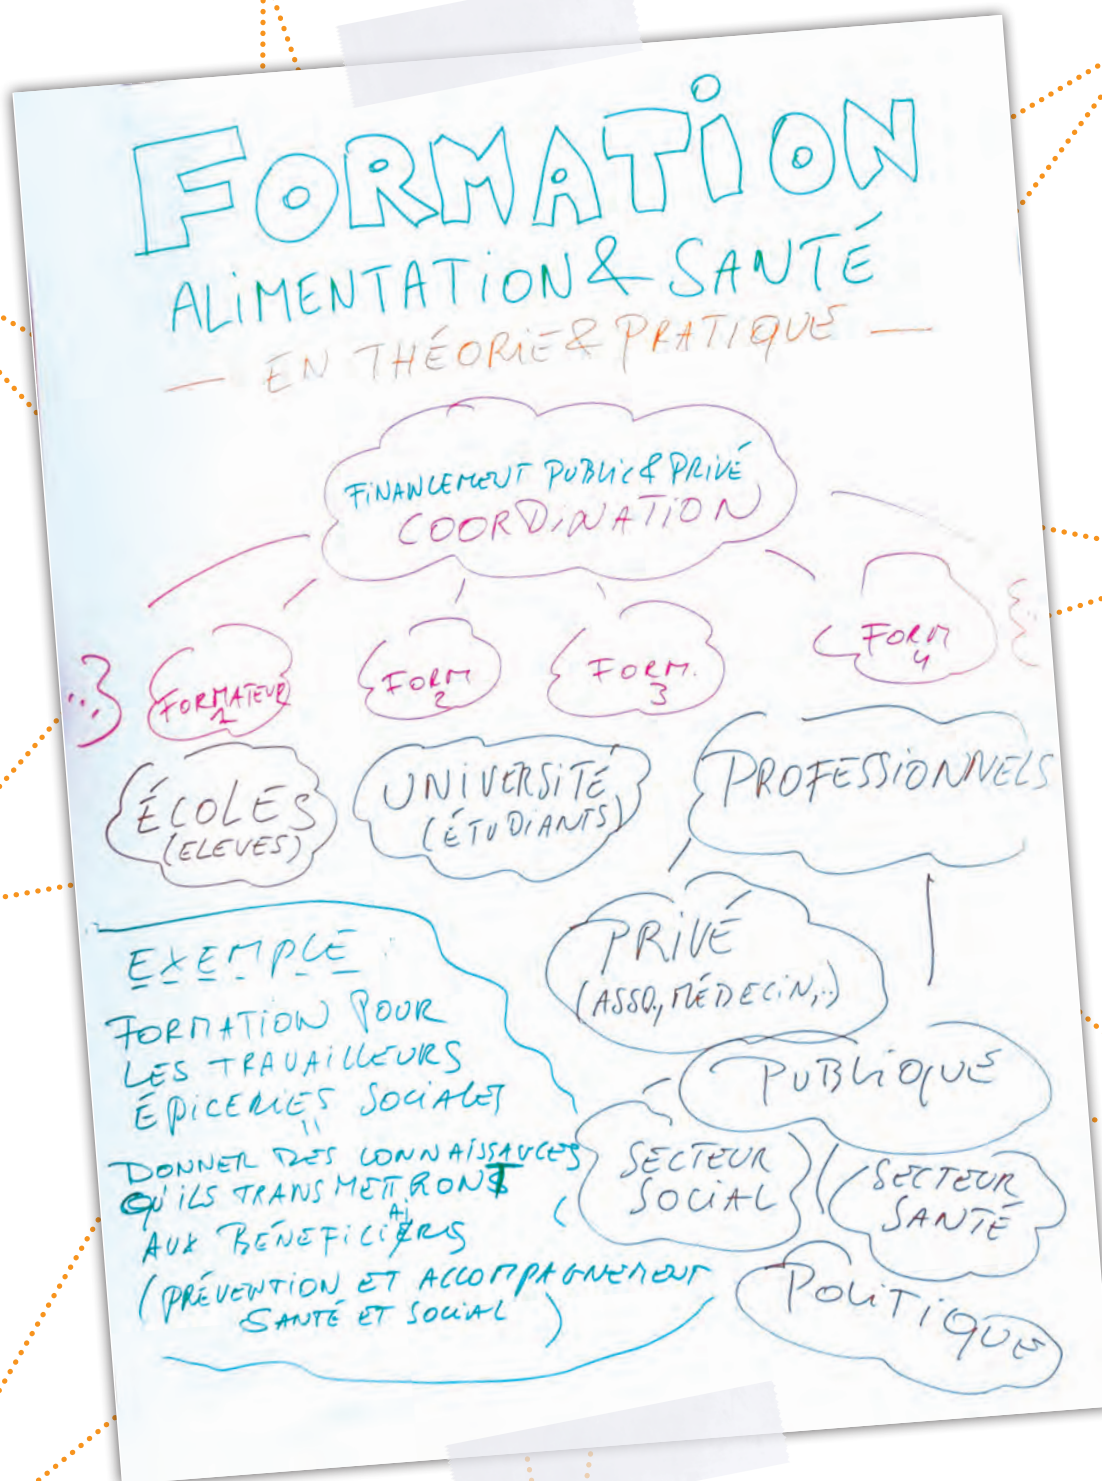 FORMATION
ALIMENTATION & SANTÉ
— EN THÉORIE & PRATIQUE —
FINANCEMENT PUBLIC & PRIVÉ
COORDINATION
...
FORMATEUR
1
FORM
2
FORM.
3
FORM
4
...
ÉCOLES
(ELEVES)
UNIVERSITÉ
(ÉTUDIANTS)
PROFESSIONNELS
PRIVÉ
(ASSO, MÉDECIN,..)
PUBLIQUE
SECTEUR
SOCIAL
SECTEUR
SANTÉ
POLITIQUE
EXEMPLE :
FORMATION POUR
LES TRAVAILLEURS
ÉPICERIES SOCIALES
"
DONNER DES CONNAISSANCES
QU'ILS TRANSMETTRONT
AUX BÉNEFICIAIRES
(PRÉVENTION ET ACCOMPAGNEMENT
SANTÉ ET SOCIAL)